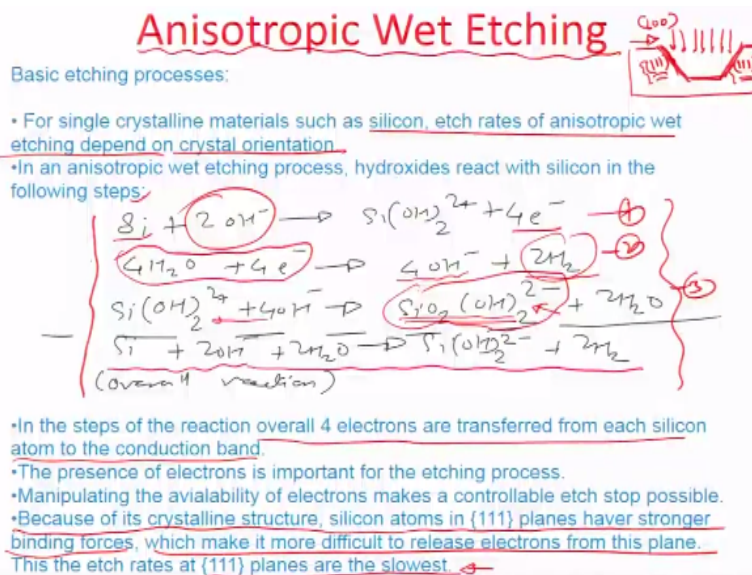 Anisotropic Wet Etching
(100)
(111) (111)
Basic etching processes:
• For single crystalline materials such as silicon, etch rates of anisotropic wet
etching depend on crystal orientation.
•In an anisotropic wet etching process, hydroxides react with silicon in the
following steps:
Si + 2 OH⁻ → Si(OH)₂²⁺ + 4e⁻ — ①
4H₂O + 4e⁻ → 4OH⁻ + 2H₂ — ②
Si(OH)₂²⁺ + 4OH⁻ → SiO₂(OH)₂²⁻ + 2H₂O — ③
Si + 2OH⁻ + 2H₂O → Si(OH)₂²⁻ + 2H₂
(overall reaction)
•In the steps of the reaction overall 4 electrons are transferred from each silicon
atom to the conduction band.
•The presence of electrons is important for the etching process.
•Manipulating the avialability of electrons makes a controllable etch stop possible.
•Because of its crystalline structure, silicon atoms in {111} planes haver stronger
binding forces, which make it more difficult to release electrons from this plane.
This the etch rates at {111} planes are the slowest.